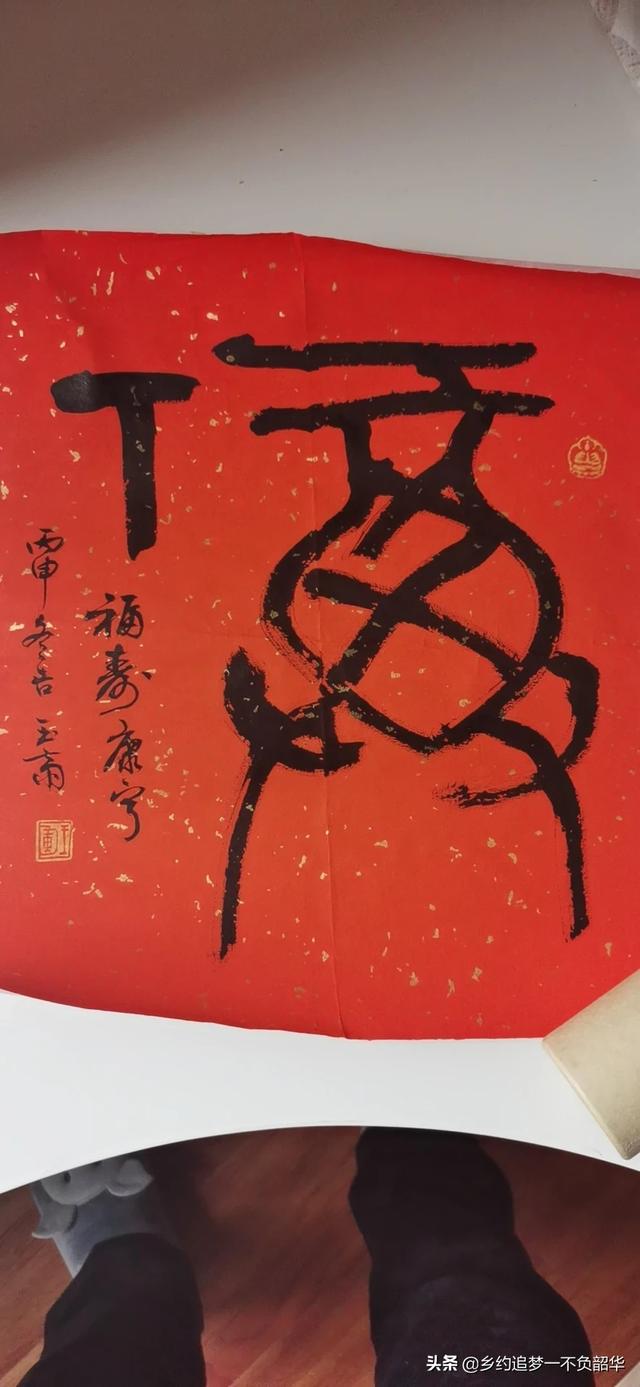 福
福寿康宁
丙申冬吉
头条 @乡约追梦一不负韶华